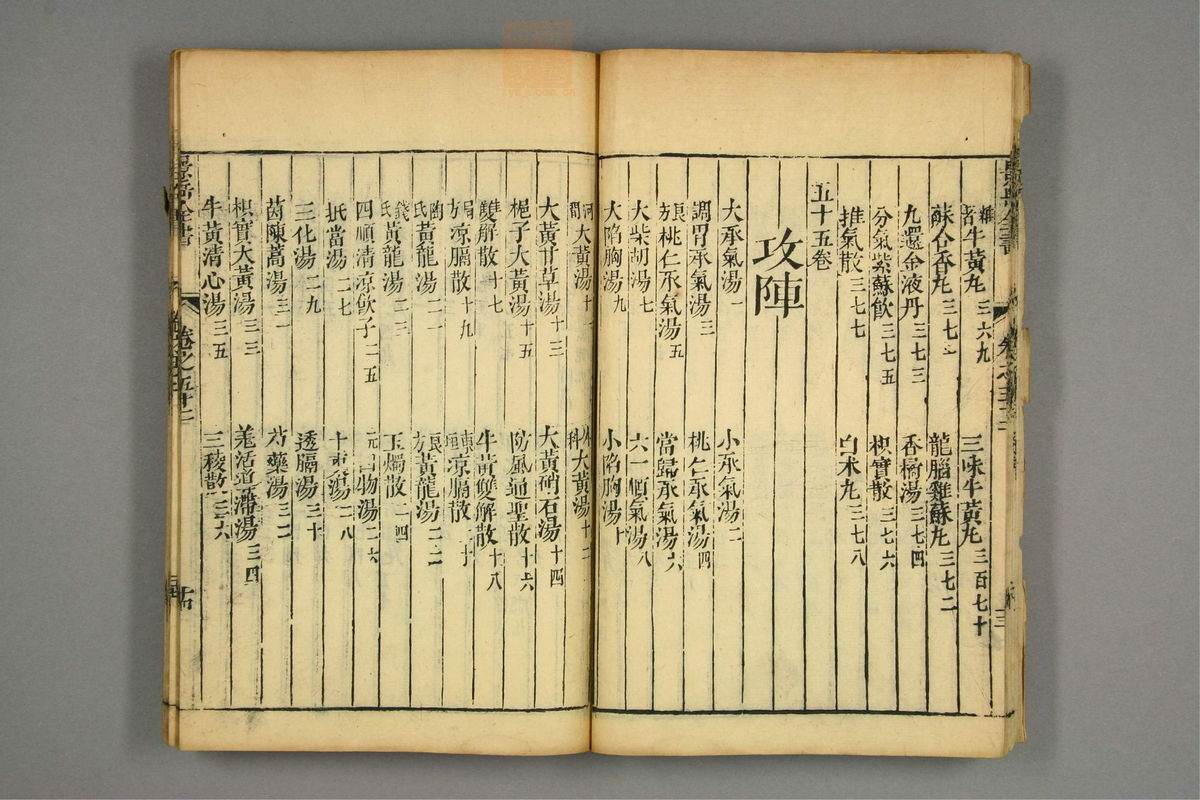 雜著牛黃丸三六九
三味牛黃丸三百七十
蘇合香丸三七一
龍腦雞蘇丸三七二
九還金液丹三七三
香橘湯三七四
分氣紫蘇飲三七五
枳實散三七六
推氣散三七七
白朮丸三七八
五十五卷
攻陣
大承氣湯一
小承氣湯二
調胃承氣湯三
桃仁承氣湯四
良方桃仁承氣湯五
當歸承氣湯六
大柴胡湯七
六一順氣湯八
大陷胸湯九
小陷胸湯十
河間大黃湯十一
外科大黃湯十二
大黃甘草湯十三
大黃硝石湯十四
梔子大黃湯十五
防風通聖散十六
雙解散十七
牛黃雙解散十八
局方涼膈散十九
東垣涼膈散二十
陶氏黃龍湯二一
良方黃龍湯二二
錢氏黃龍湯二三
玉燭散二四
四順清涼飲子二五
元戎四物湯二六
抵當湯二七
十棗湯二八
三化湯二九
透膈湯三十
茵陳蒿湯三一
芍藥湯三二
枳實大黃湯三三
羌活導滯湯三四
牛黃清心湯三五
三稜散三六
景岳全書
卷之五十二